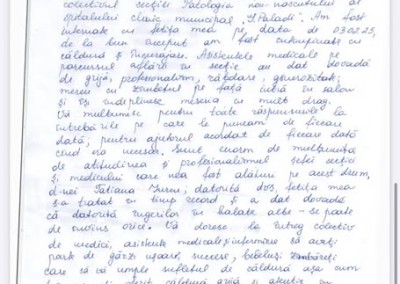 colectivul secției Patologia nou-născutului al
spitalului clinic municipal "S. Paladi". Am fost
internate cu fetița mea pe data de 03.02.23,
de la bun început am fost întâmpinate cu
căldură și încurajare. Asistentele medicale pe
parcursul aflării în secție au dat dovadă
de grijă, profesionalism, răbdare, generozitate;
mereu cu zâmbetul pe față intră în salon
și își îndeplinesc meseria cu mult drag.
Vă mulțumesc pentru toate răspunsurile la
întrebările pe care le puneam de fiecare
dată, pentru ajutorul acordat de fiecare dată
când era necesar. Sunt enorm de mulțumită
de atitudinea și profesionalismul șefei secției
și medicului care nea fost alături pe acest drum,
d-nei Tatiana; datorită dvs, fetița mea
s-a tratat în timp record și a dat dovadă
că datorită îngerilor în halate albe - se poate
de învins orice. Vă doresc la întreg colectiv
de medici, asistente medicale, infirmiere să aveți
parte de gărzi ușoare, succese, bebeluși zâmbăreți
care să vă umple sufletul de căldură așa cum
căldură, grijă și